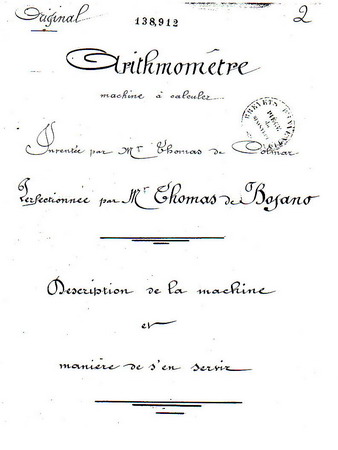 Original
138,912
2
Arithmomètre
machine à calculer
BREVETS D'INVENTION
Inventée par Mr Thomas de Colmar
Perfectionnée par Mr Thomas de Bojano
Description de la machine
et
manière de s'en servir